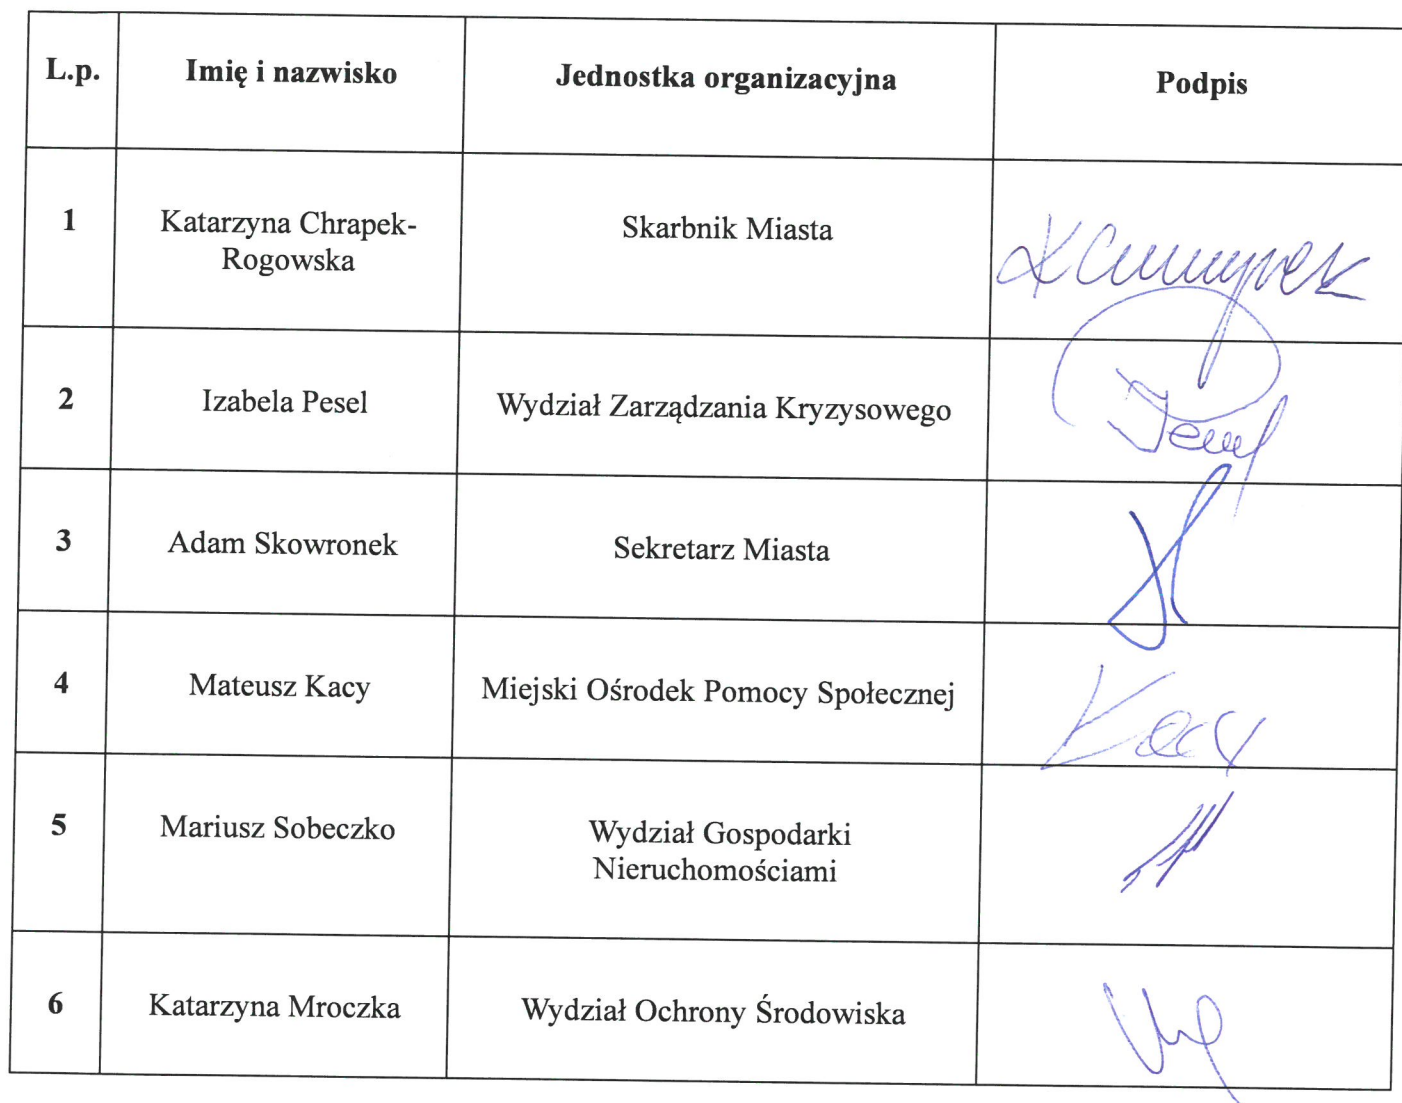 L.p. Imię i nazwisko Jednostka organizacyjna Podpis
1 Katarzyna Chrapek- Skarbnik Miasta
Rogowska
2 Izabela Pesel Wydział Zarządzania Kryzysowego
3 Adam Skowronek Sekretarz Miasta
4 Mateusz Kacy Miejski Ośrodek Pomocy Społecznej Kacy
5 Mariusz Sobeczko Wydział Gospodarki
Nieruchomościami
6 Katarzyna Mroczka Wydział Ochrony Środowiska